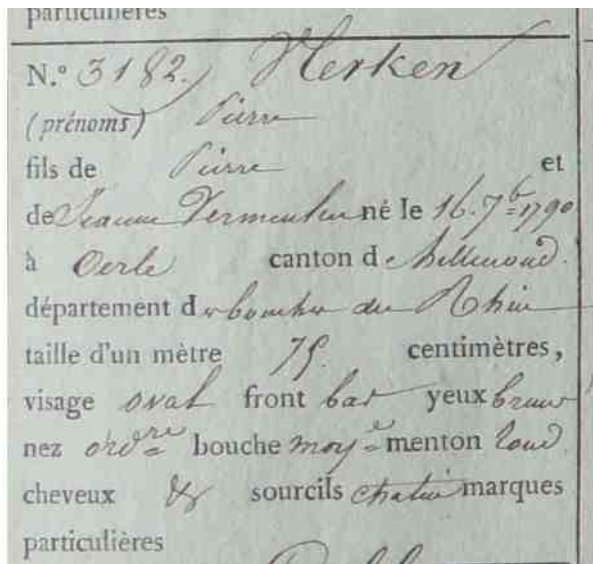 particulières
N.º 3182. Herken
(prénoms) Pierre
fils de Pierre et
de Jeanne Vermeulen né le 16. 7b 1790
à Oerle canton d
département d bouches du Rhin
taille d'un mètre 75. centimètres,
visage oval front bas yeux bruns
nez ord.re bouche moy.e menton rond
cheveux & sourcils chatin marques
particulières